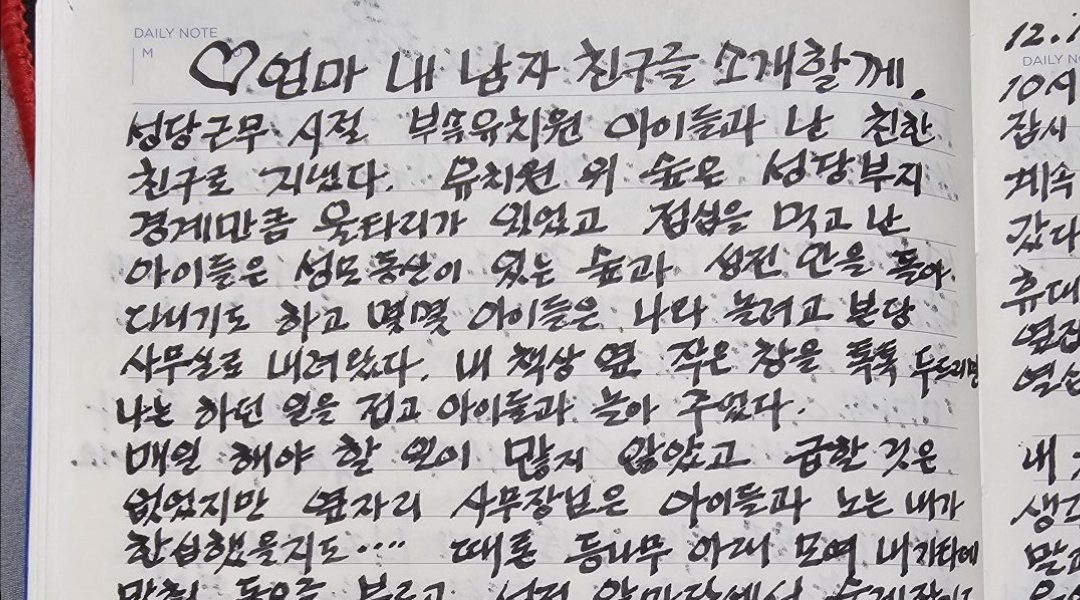 DAILY NOTE
M
♡엄마 내 남자 친구를 소개할께.
성당근무 시절 부속유치원 아이들과 난 친한
친구로 지냈다. 유치원 위 숲은 성당부지
경계만큼 울타리가 있었고 점심을 먹고 난
아이들은 성모동산이 있는 숲과 성전 안을 돌아
다니기도 하고 몇몇 아이들은 나와 놀려고 본당
사무실로 내려왔다. 내 책상 옆 작은 창을 톡톡 두드리면
나는 하던 일을 접고 아이들과 놀아 주었다.
매일 해야 할 일이 많지 않았고 급할 것은
없었지만 옆자리 사무장님은 아이들과 노는 내가
한심했을지도.... 때론 등나무 아래 모여 내 기타에
맞춰 동요를 부르고 성전 앞마당에서
12.
DAILY NO
10시
잠시
계속
갔다
휴대
옆집
열심
내
생각
말고